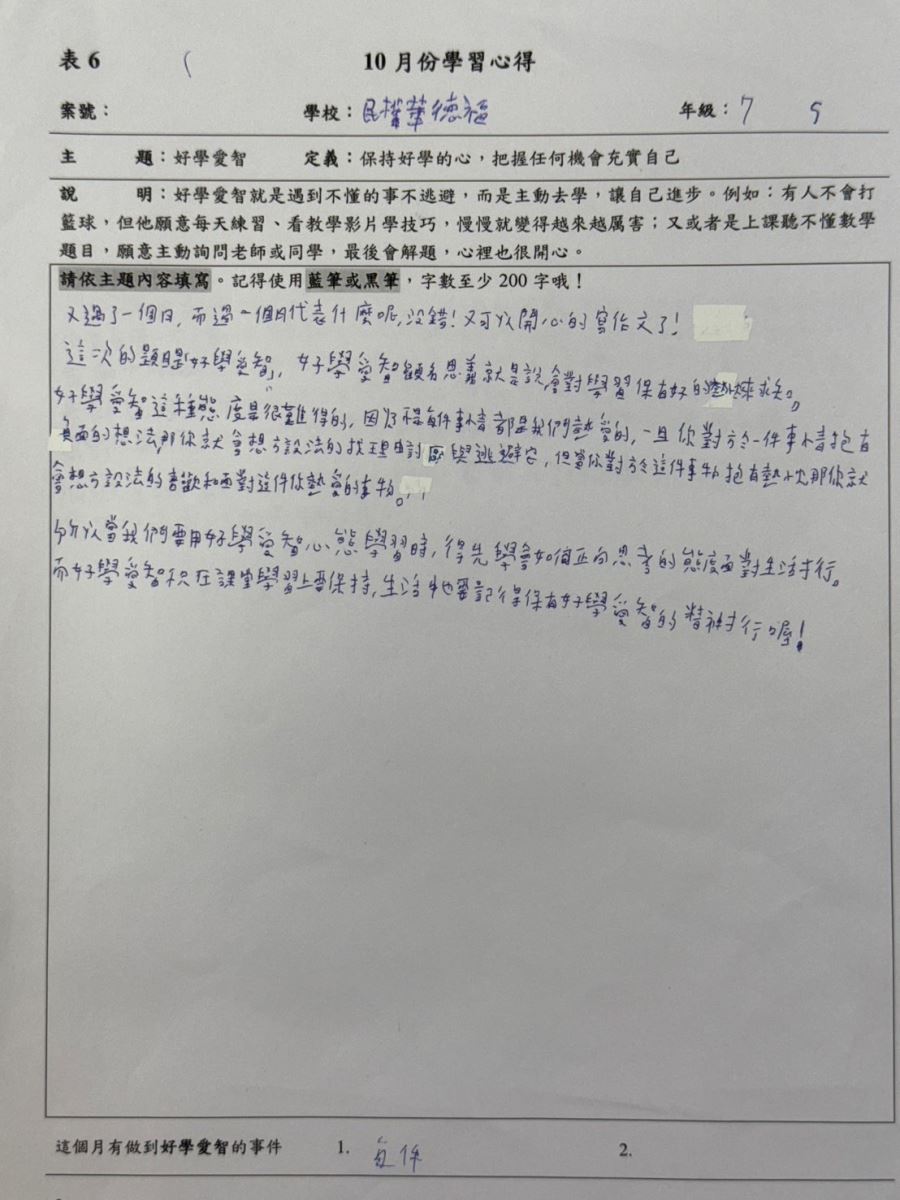 表 6 ( 10 月份學習心得
案號： 學校：民權華德福 年級：7 9
主 題：好學愛智 定義：保持好學的心，把握任何機會充實自己
說 明：好學愛智就是遇到不懂的事不逃避，而是主動去學，讓自己進步。例如：有人不會打
籃球，但他願意每天練習、看教學影片學技巧，慢慢就變得越來越厲害；又或者是上課聽不懂數學
題目，願意主動詢問老師或同學，最後會解題，心裡也很開心。
請依主題內容填寫。記得使用藍筆或黑筆，字數至少 200 字哦！
又過了一個月，而過一個月代表什麼呢，沒錯！又可以開心的寫作文了！
這次的題目是「好學愛智」，好學愛智顧名思義就是說，會對學習保有好的態度來求知。
好學愛智這種態度是很難得的，因為不是每件事情都是我們熱愛的，一旦你對於一件事情抱有
負面的想法，那你就會想方設法的找理由討厭與逃避它，但當你對於這件事物抱有熱忱那你就
會想方設法的喜歡和面對這件你熱愛的事物。
所以當我們要用好學愛智心態學習時，得先學會如何正向思考的態度面對生活才行。
而好學愛智不只在課堂學習上要保持，生活中也要記得保有好學愛智的精神才行喔！
這個月有做到好學愛智的事件 1. 2.